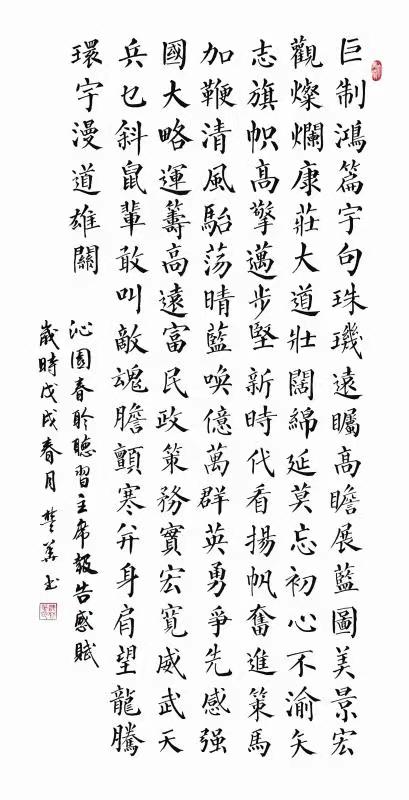 巨制鴻篇字句珠璣遠矚高瞻展藍圖美景宏
觀燦爛康莊大道壯闊綿延莫忘初心不渝矢
志旗幟高擎邁步堅新時代看揚帆奮進策馬
加鞭清風駘荡晴藍喚億萬群英勇爭先感强
國大略運籌高遠富民政策務實宏寬威武天
兵乜斜鼠輩敢叫敵魂膽顫寒并身肩望龍騰
環宇漫道雄關
沁園春聆聽習主席報告感賦
歲時戊戌春月樊書